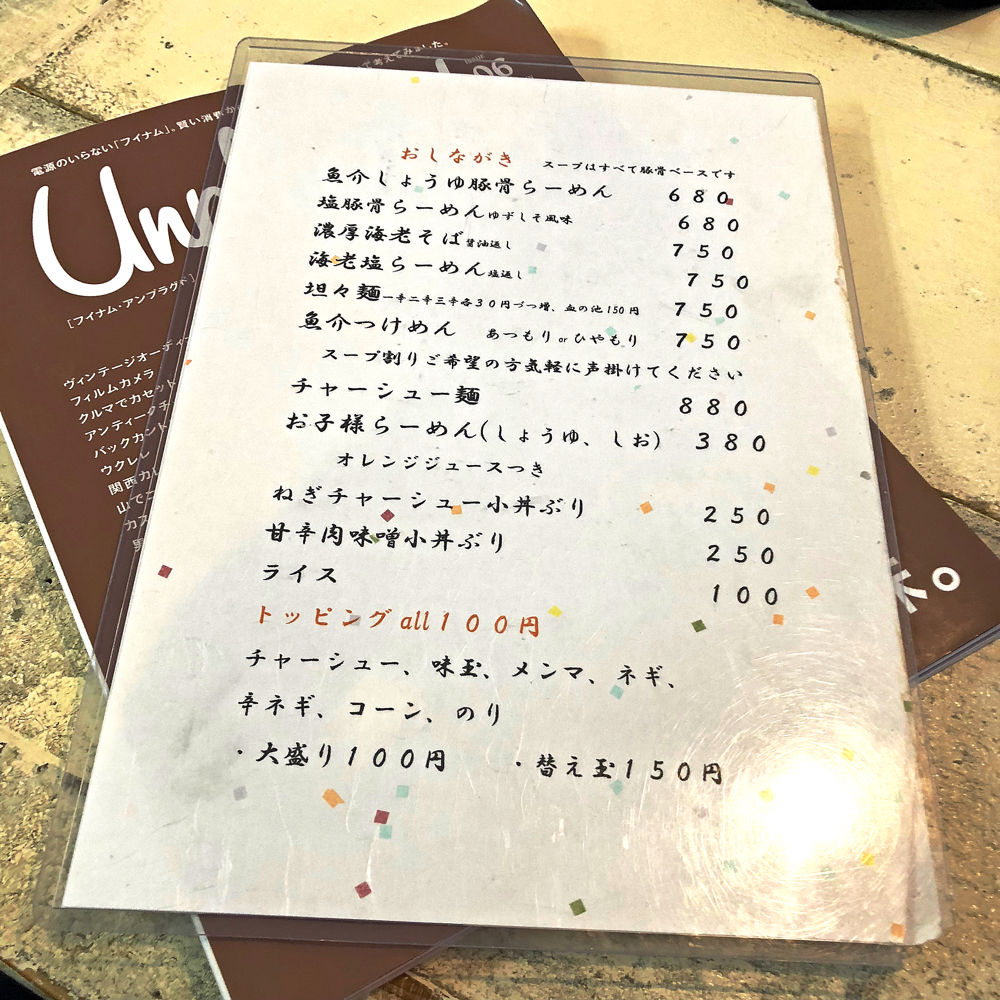 電源のいらない「フイナム」。賢い消費か
で考えてみました。
Issue
06
Unp
[フイナム・アンプラグド]
ヴィンテージオーディ
フィルムカメラ
クルマでカセット
アンティーク
バックカント
ウクレレ
関西カレ
山で
カス
おしながき スープはすべて豚骨ベースです
魚介しょうゆ豚骨らーめん 680
塩豚骨らーめんゆずしそ風味 680
濃厚海老そば醤油返し 750
海老塩らーめん塩返し 750
坦々麺一辛二辛三辛各30円づつ増、血の池150円 750
魚介つけめん あつもりorひやもり 750
スープ割りご希望の方気軽に声掛けてください
チャーシュー麺 880
お子様らーめん(しょうゆ、しお) 380
オレンジジュースつき
ねぎチャーシュー小丼ぶり 250
甘辛肉味噌小丼ぶり 250
ライス 100
トッピングall100円
チャーシュー、味玉、メンマ、ネギ、
辛ネギ、コーン、のり
・大盛り100円 ・替え玉150円